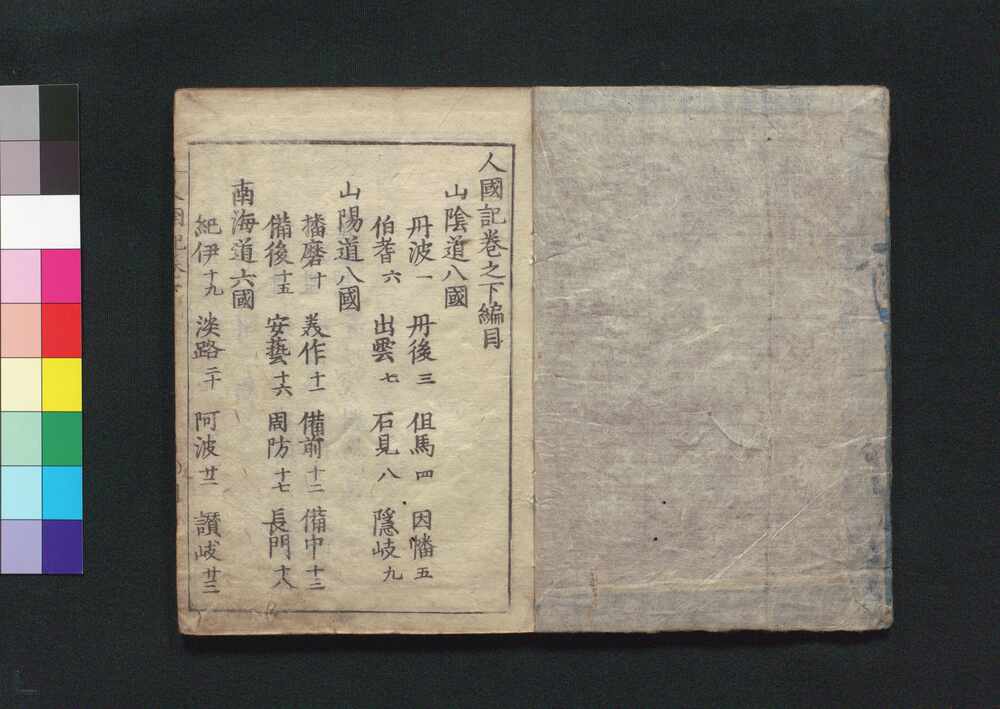 人國記巻之下編目
山陰道八國
丹波一 丹後三 但馬四 因幡五
伯耆六 出雲七 石見八 隱岐九
山陽道八國
播磨十 美作十一 備前十二 備中十三
備後十五 安藝十六 周防十七 長門十八
南海道六國
紀伊十九 淡路二十 阿波廿二 讃岐廿三